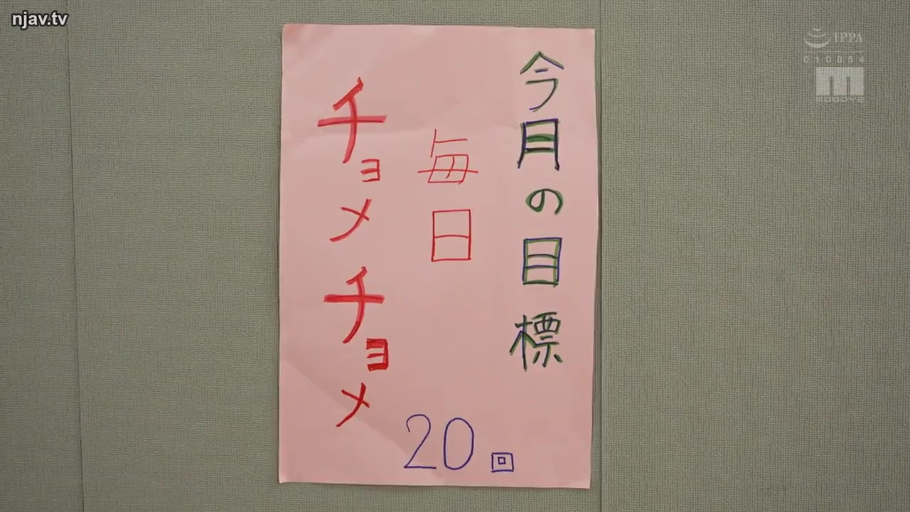 njav.tv
IPPA
010054
MOODYZ
今月の目標
毎日
チョメチョメ
20回